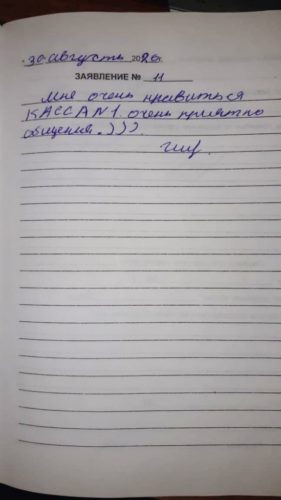 30 августь 2020г.
ЗАЯВЛЕНИЕ № 11
Мне очень нравиться
КАССА N1. очень приятно
общения.)))